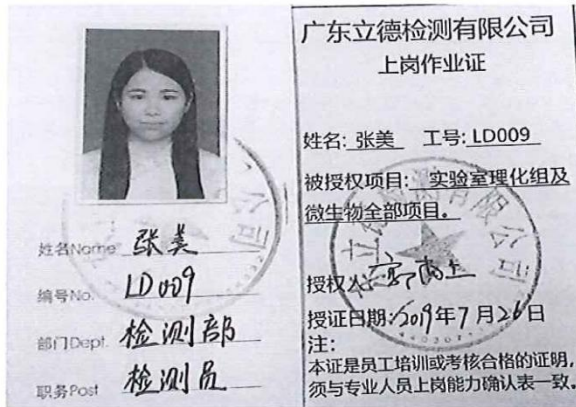 姓名Name 张美
编号No. LD009
部门Dept. 检测部
职务Post 检测员
广东立德检测有限公司
上岗作业证
姓名: 张美 工号: LD009
被授权项目: 实验室理化组及
微生物全部项目。
授权人:
授证日期: 2019年7月26日
注:
本证是员工培训或考核合格的证明,
须与专业人员上岗能力确认表一致。